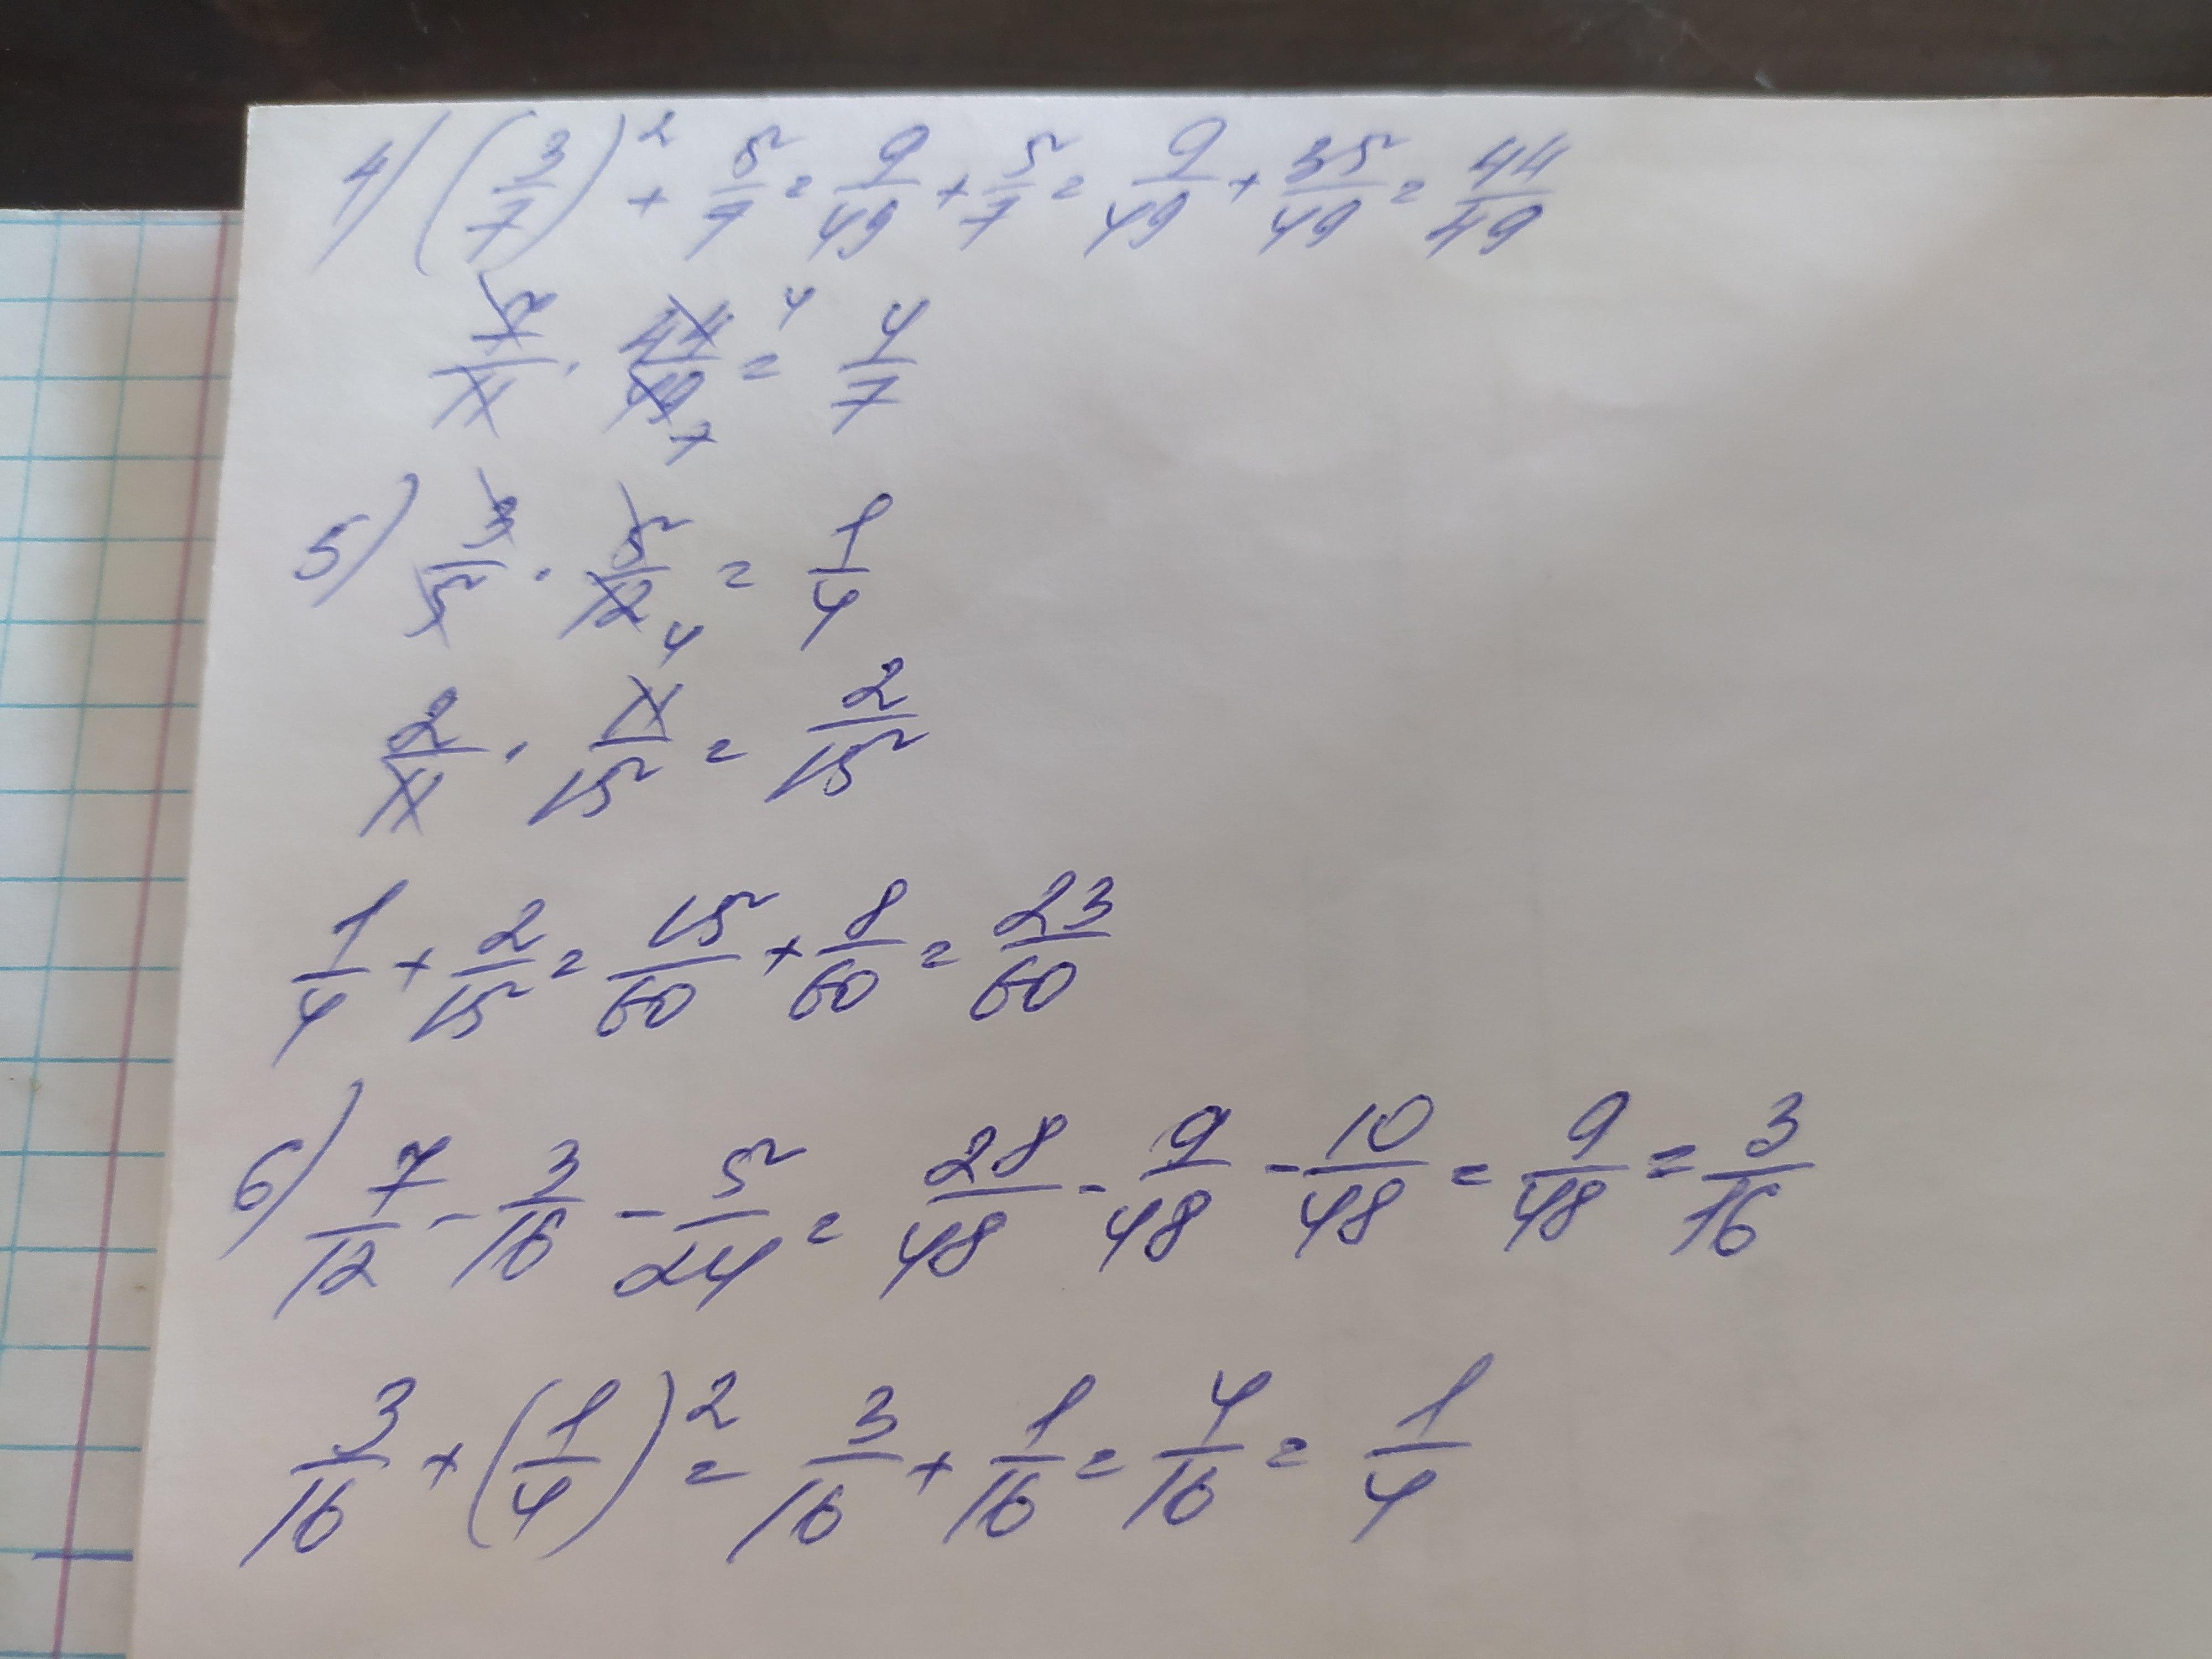 4) (3/7)² + 5/7 = 9/49 + 5/7 = 9/49 + 35/49 = 44/49
7/11 · 44/49 = 4/7 4 7
5) 3/5 · 5/12 = 1/4 4
2/11 · 11/15 = 2/15
1/4 + 2/15 = 15/60 + 8/60 = 23/60
6) 7/12 - 3/16 - 5/24 = 28/48 - 9/48 - 10/48 = 9/48 = 3/16
3/16 + (1/4)² = 3/16 + 1/16 = 4/16 = 1/4